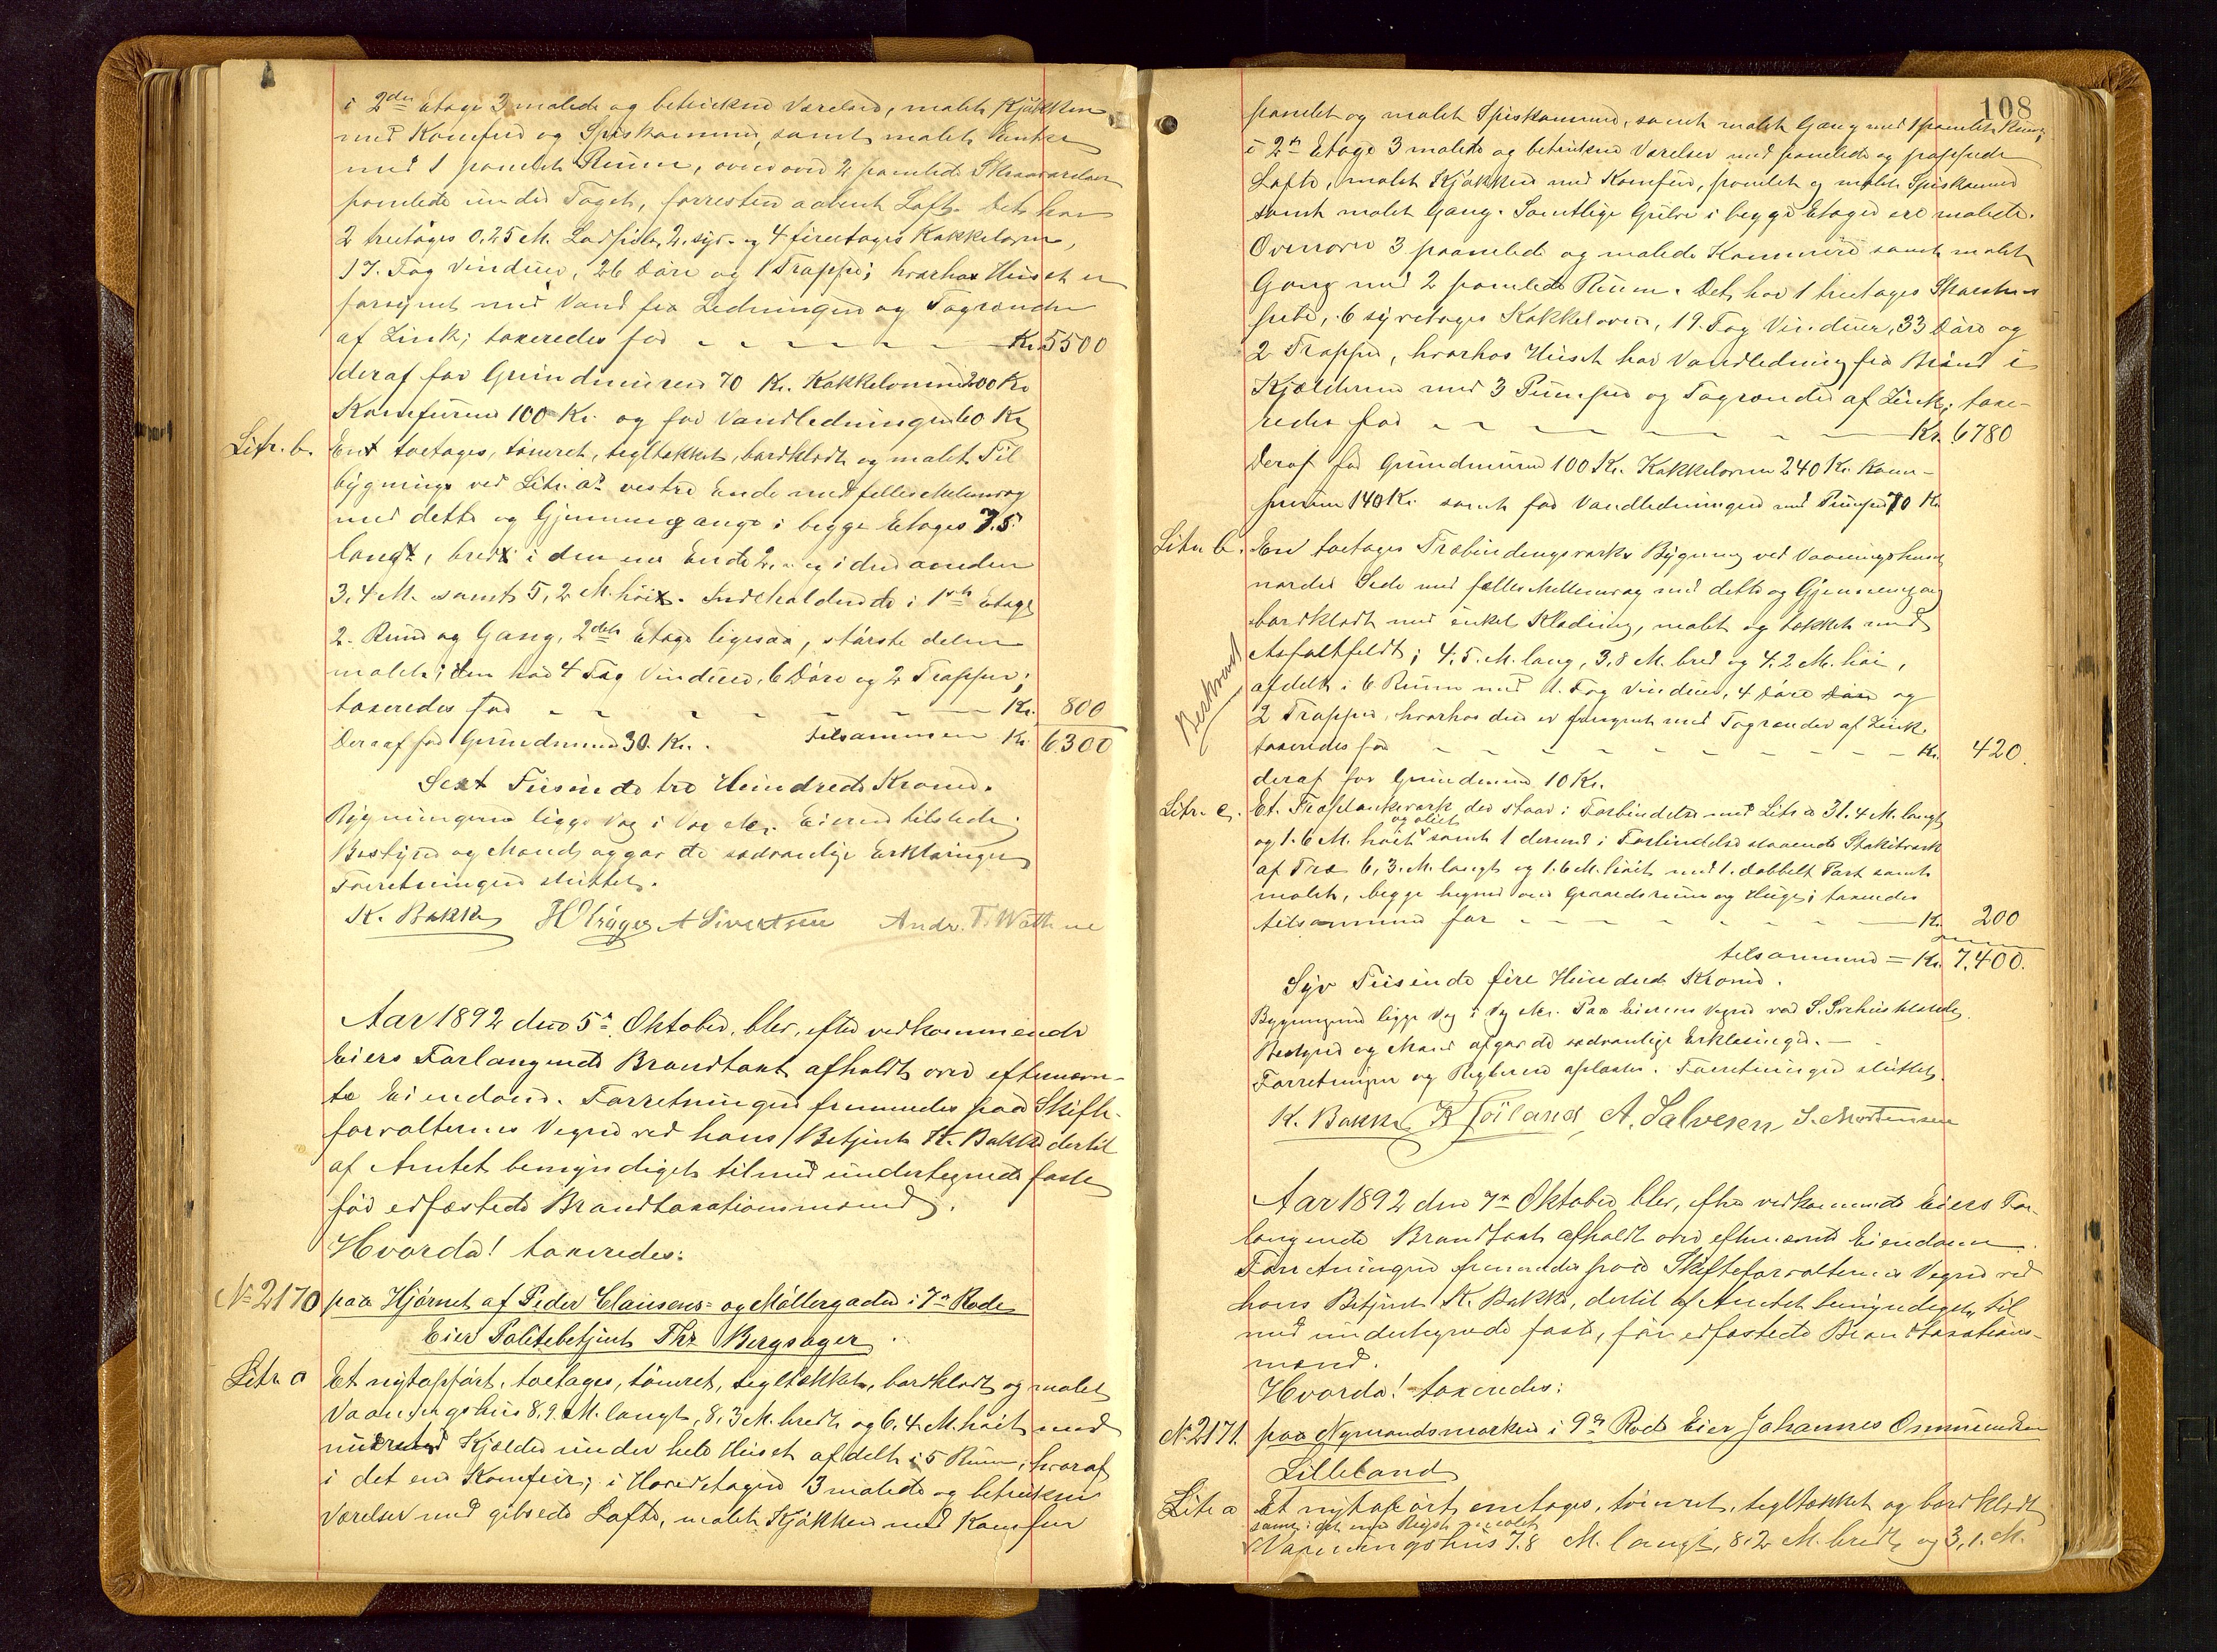 i 2den Etage 3 malede og betrukne Værelser, malet Kjøkken
med Komfur og Spiskammer, samt malet Entre
med 1 panelet Rum, ovenover 2 panelede Skraaværelser
panelede under Taget, forresten aabent Loft. Det har
2 treetages 0.25 M. Ladpiber, 2 syv- og 4 fireetages Kakkelovne,
17 Fag Vinduer, 26 Døre og 1 Trappe; hvorhos Huset er
forsynet med Vand fra Ledningen og Tagrender
af Zink; taxeredes for - - - - - Kr. 5500
deraf for Grundmuren 70 Kr. Kakkelovnene 200 Kr.
Komfurene 100 Kr. og for Vandledningen 60 Kr.
Litr. b. En toetages, tømret, tegltækket, bordklædt og malet Til
bygning ved Litr. a's vestre Ende med fælles Mellemvæg
med dette og Gjennemgange i begge Etager 7.5
lang, bred i den ene Ende 2, og i den anden
3,4 M. samt 5,2 M. høi. Indeholdende i 1ste Etage
2 Rum og Gang, 2den Etage ligesaa, største delen
malet; den har 4 Fag Vinduer, 6 Døre og 2 Trapper;
taxeredes for - - - - - Kr. 800
Deraf for Grundmuren 30 Kr. tilsammen Kr. 6300
Sext Tusinde tre Hundrede Kroner.
Bygningerne ligge Væg i Væg etc. Eieren tilstede
Bestyrer og Mænd afgav de sædvanlige Erklæringer
Forretningen sluttet.
K. Bakke H Träger A Sivertsen Andr. T. Wathne
Aar 1892 den 5te Oktober, blev, efter vedkommende
Eiers Forlangende Brandtaxt afholdt over eftenævn-
te Eiendom. Forretningen fremmedes paa Skifte-
forvalterens Vegne ved hans Betjent K. Bakke dertil
af Amtet bemyndiget tilmed undertegnede faste
før edfæstede Brandtaxationsmænd.
Hvorda! taxeredes:
No 2170 paa Hjørnet af Peder Clausens- og Møllergaden i 7de Rode
Eier Politibetjent Thr Bergsager
Litr a Et nytopført, toetages, tømret, tegltækket, bordklædt og malet
Vaaningshus 8,9 M. langt, 8,3 M. bredt og 6.4 M. høit med
muret Kjælder under hele Huset afdelt i 5 Rum, hvoraf
i det ene Komfur; i Hovedetagen 3 malede og betrukne
Værelser med gibsede Lofte, malet Kjøkken med Komfur
108
panelet og malet Spiskammer, samt malet Gang med 1 panelet Rum,
i 2den Etage 3 malede og betrukne Værelser med panelede og pappede
Lofte, malet Kjøkken med Komfur, panelet og malet Spiskammer
samt malet Gang. Samtlige Gulve i begge Etager ere malede.
Ovenover 3 paanelede og malede Kammere samt malet
Gang med 2 panelede Rum. Det har 1 treetages Skorstens
pibe, 6 syvetages Kakkelovne, 19 Fag Vinduer, 33 Døre og
2 Trapper, hvorhos Huset har Vandledning fra Brønd i
Kjælderen med 3 Pumper og Tagrender af Zink; taxe-
redes for - - - - - Kr. 6780
Deraf for Grundmuren 100 Kr. Kakkelovnene 240 Kr. Kom-
furene 140 Kr. samt for Vandledningen med Pumper 70 Kr.
Litr b. En toetages Træbindingsværks Bygning ved Vaaningshusets
nordre Side med fælles Mellemvæg med dette og Gjennemgang
bordklædt med enkel Klædning, malet og tækket med
Asfaltfeldt; 4.5 M. lang, 3,8 M. bred og 4.2 M. høi,
afdelt i 6 Rum med 11 Fag Vinduer, 4 Døre og
2 Trapper, hvorhos den er forsynet med Tagrender af Zink
taxeredes for - - - - - Kr. 420.
deraf for Grundmuren 10 Kr.
Litr. c. Et Træplankeværk der staar i Forbindelse med Litr a 31.4 M. langt
og oliet
og 1.6 M. høit samt 1 dermed i Forbindelse staaende Stakitværk
af Træ 6,3 M. langt og 1.6 M. høit med 1 dobbelt Port samt
malet, begge hegner om Gaardsrum og Hage; taxeredes
tilsammen for - - - - - Kr. 200
tilsammen = Kr. 7,400.
Syv Tusinde fire Hundrede Kroner.
Bygningerne ligge Væg i Væg etc. Paa Eierens Vegne var
Bestyrer og Mænd afgav de sædvanlige Erklæringer. —
Forretningen og Reglerne oplæstes. Forretningen sluttet.
K. Bakke K Høiland A. Salvesen S. Mortensen
Aar 1892 den 7de Oktober blev, efter vedkommende Eiers For-
langende Brandtaxt afholdt over eftenævnte Eiendom.
Forretningen fremmedes paa Skifteforvalterens Vegne ved
hans Betjent K. Bakke, dertil af Amtet bemyndiget, til
med undertegnede faste, før edfæstede Brandtaxations-
mænd.
Hvorda! taxeredes:
No 2171. paa Nymandsmarken i 9de Rode Eier Johannes Osmundsen
Lilleland
Litr a Et nytopført, enetages, tømret, tegltækket og bordklædt
Vaaningshus 7.8 M. langt, 8.2 M. bredt og 3,1 M.